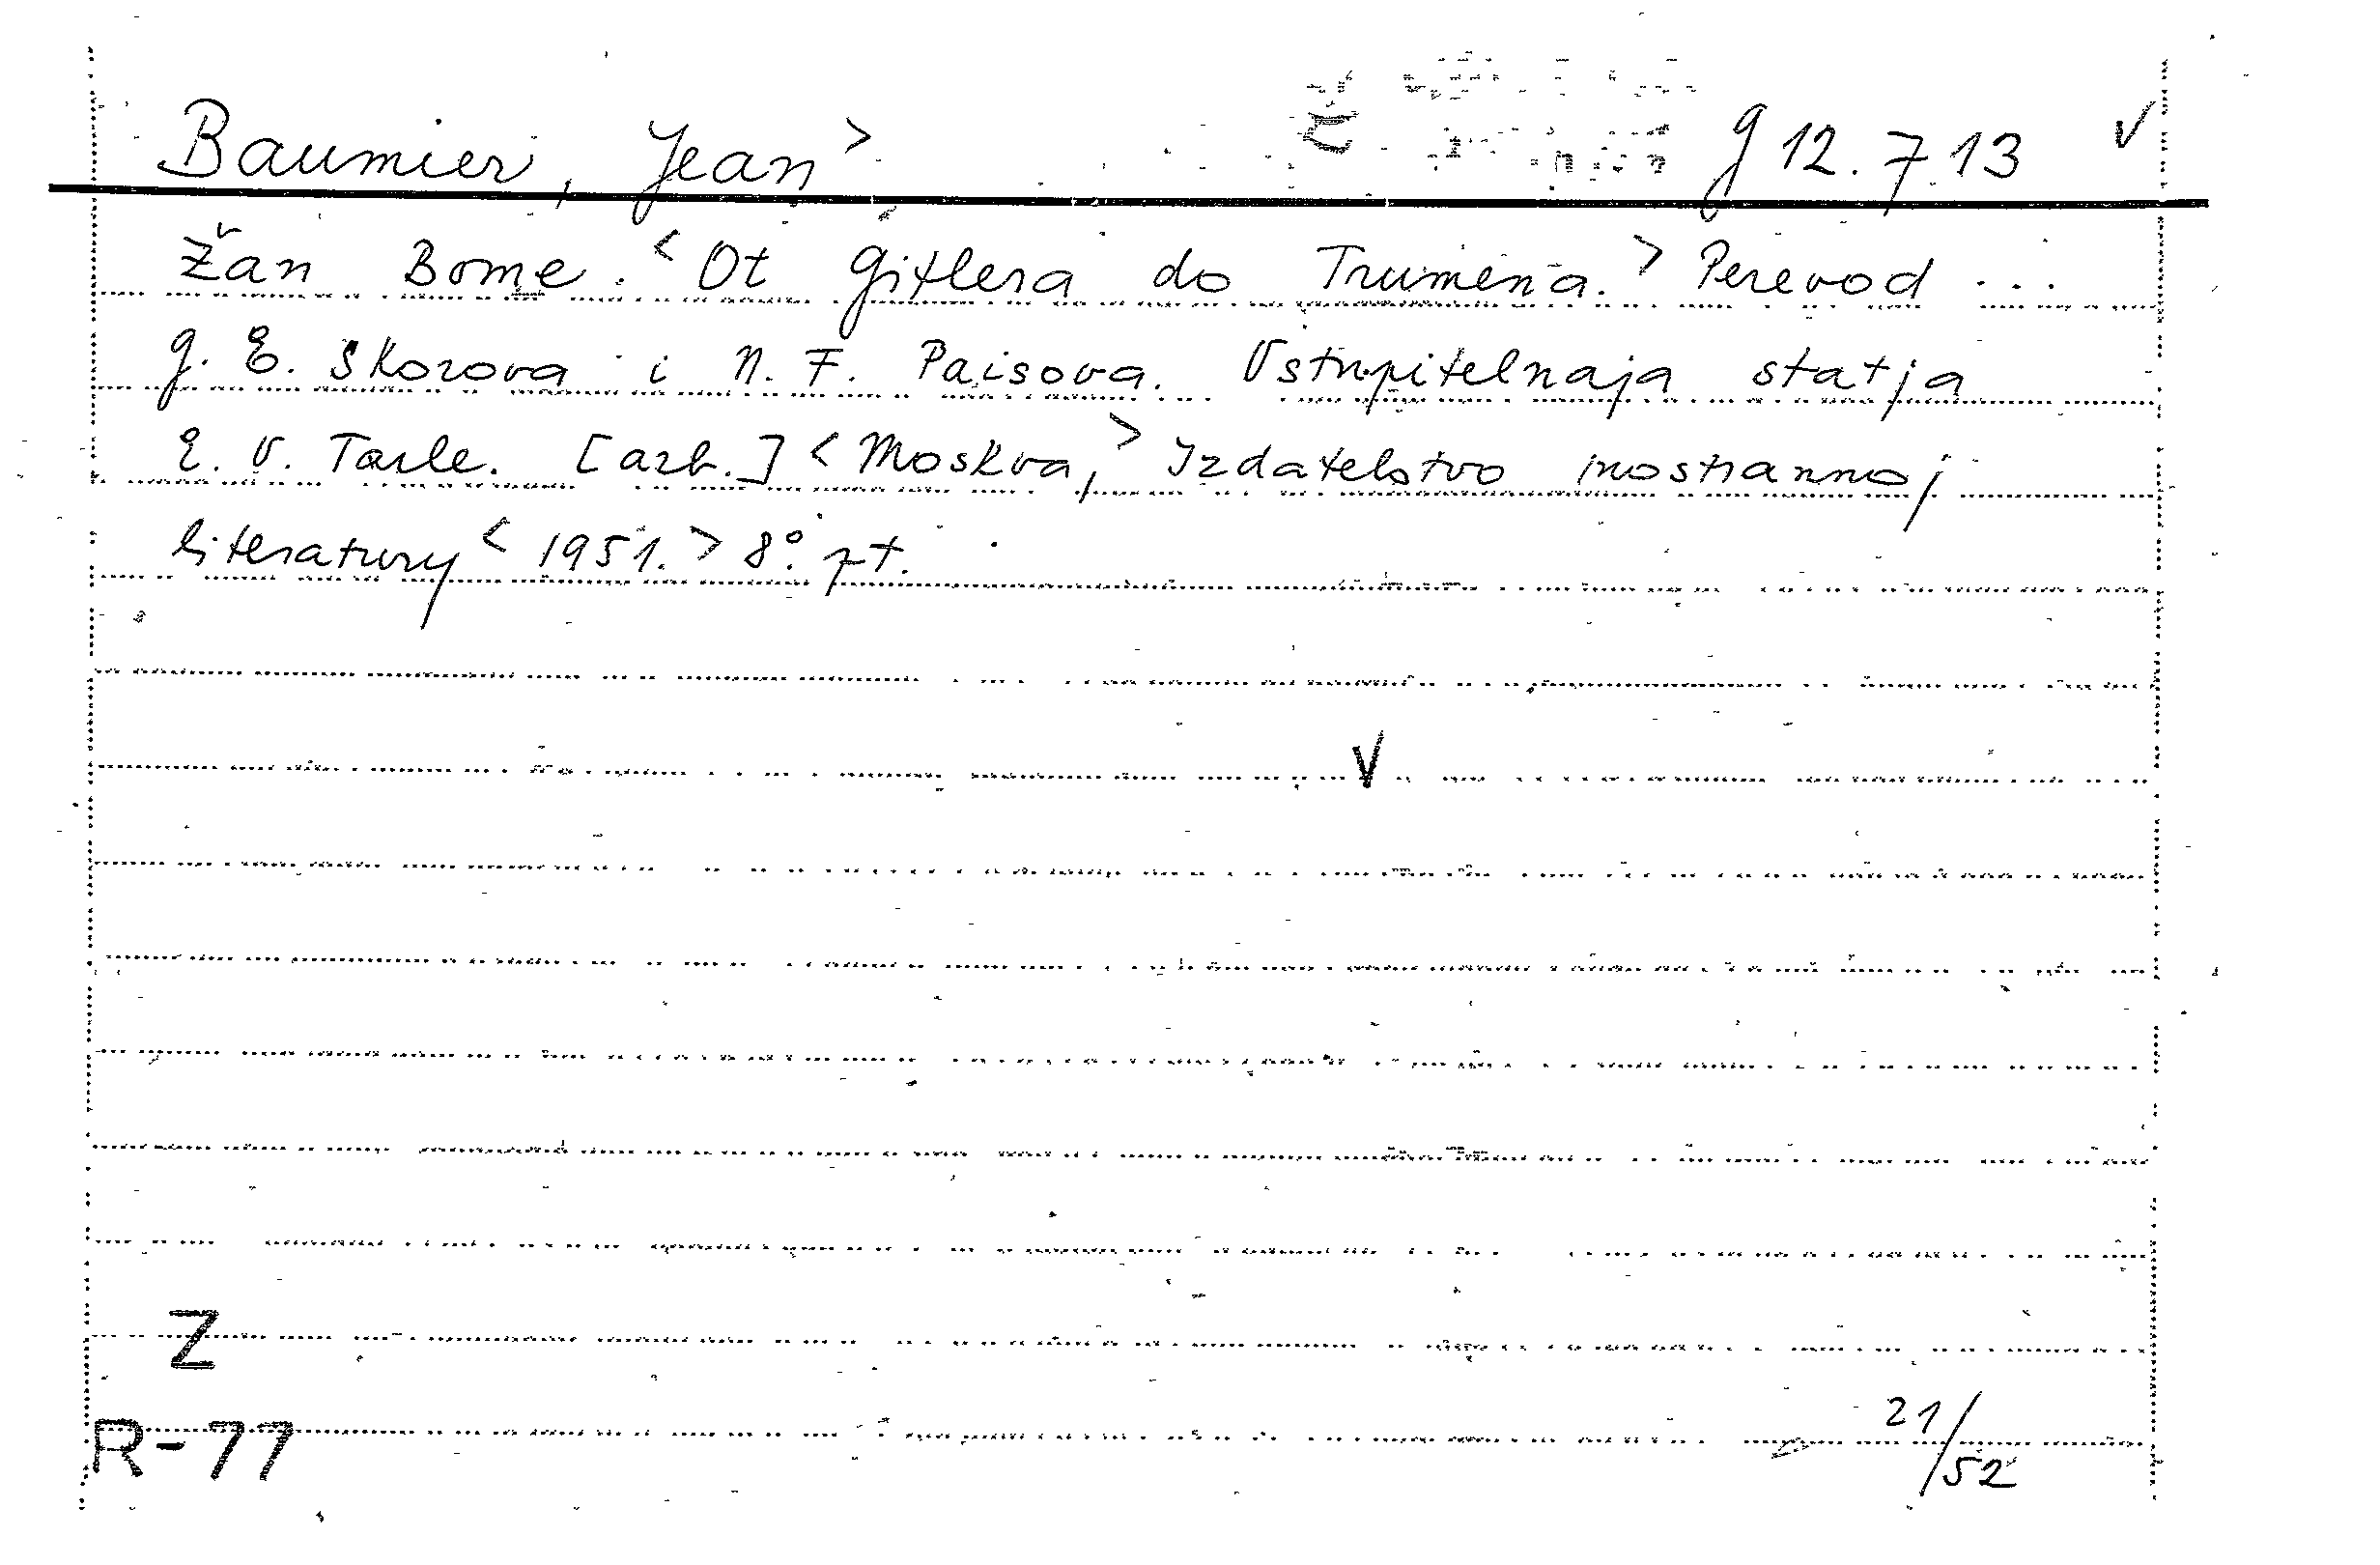 Baumier, Jean> g 12.713 v
Žan Bome. <Ot Gitlera do Trumena.> Perevod ...
G. E. Skorova i N. F. Paisova. Vstupitelnaja statja
E. V. Tarle. [azb.] <Moskva,> Izdatelstvo inostrannoj
literatury <1951.> 8°. pt.
V
Z
R-77
21/52